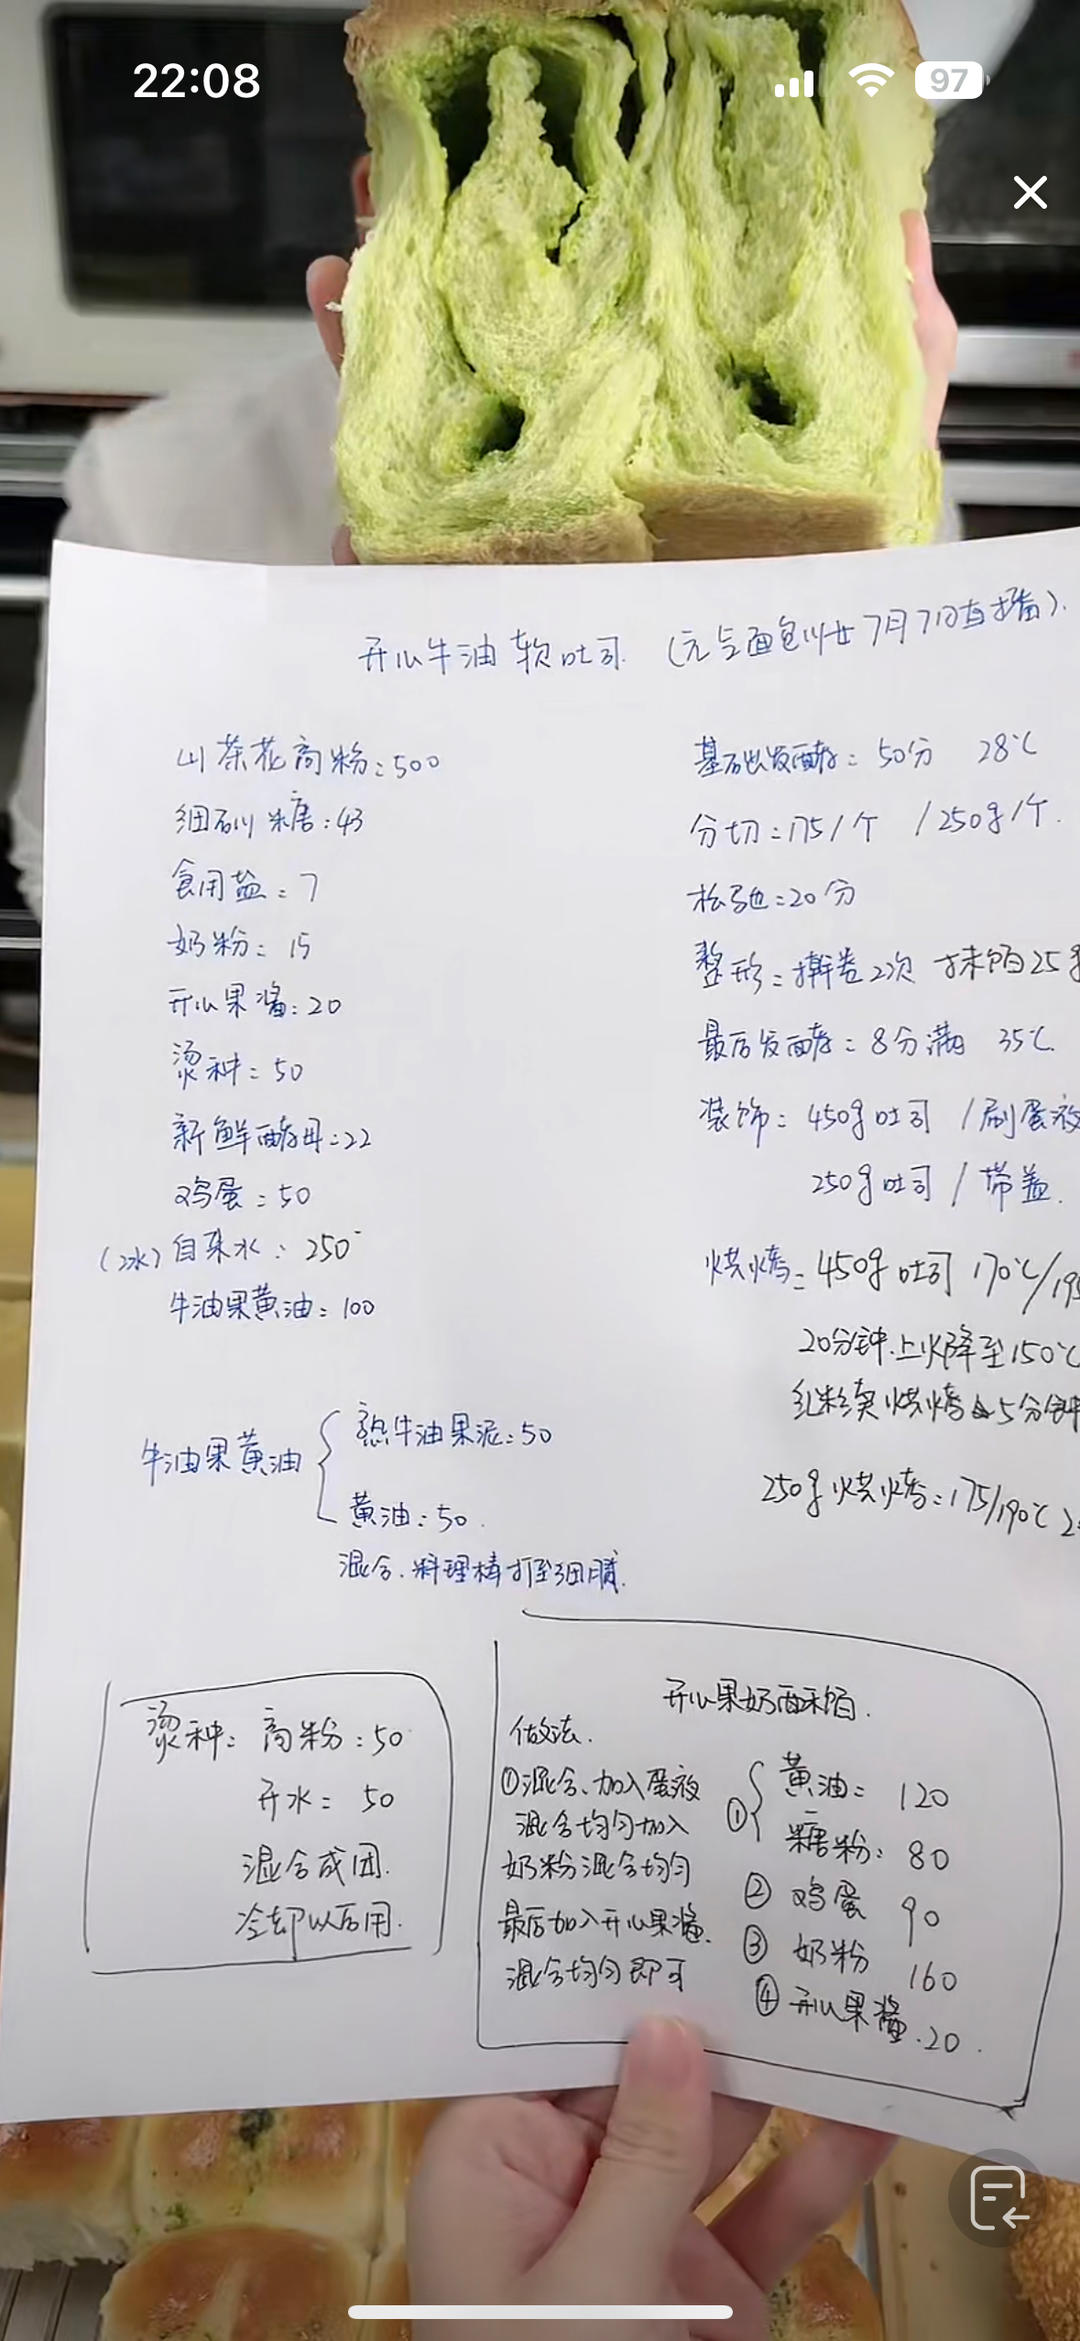 22:08
97
开心牛油软吐司 (元气面包少女7月7日直播).
山茶花高粉:500
细砂糖:43
食用盐:7
奶粉:15
开心果酱:20
烫种:50
新鲜酵母:22
鸡蛋:50
(冰)自来水:250
牛油果黄油:100
牛油果黄油
熟牛油果泥:50
黄油:50.
混合.料理棒打至细腻.
基础发酵:50分 28℃
分切:175/个 /250g/个.
松弛:20分
整形:擀卷2次 抹馅25g
最后发酵:8分满 35℃
装饰:450g吐司/刷蛋液
250g吐司/带盖.
烘烤:450g吐司 170℃/195
20分钟.上火降至150℃
继续烘烤5分钟
250g烘烤:175/190℃
烫种:高粉:50
开水:50
混合成团.
冷却以后用.
开心果奶酥馅.
做法.
①混合、加入蛋液
混合均匀加入
奶粉混合均匀
最后加入开心果酱.
混合均匀即可
① 黄油:120
糖粉:80
② 鸡蛋 90
③ 奶粉 160
④ 开心果酱.20.